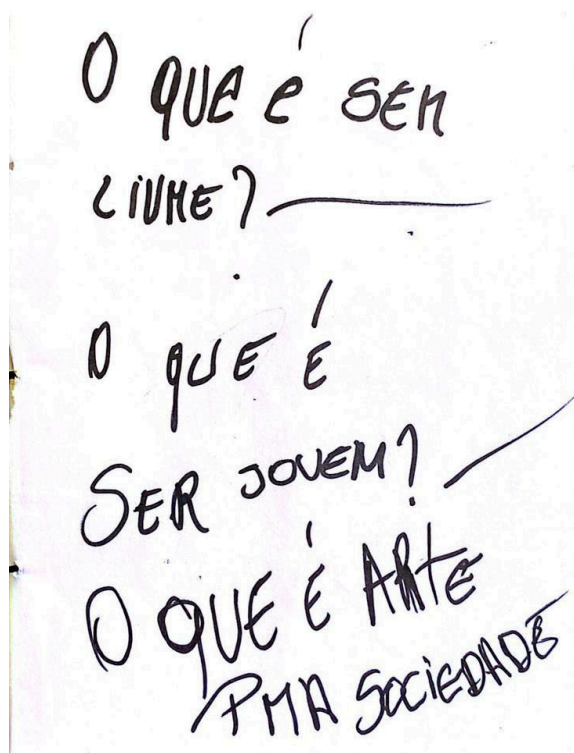 O QUE É SER
LIVRE?
O QUE É
SER JOVEM?
O QUE É ARTE
PRA SOCIEDADE